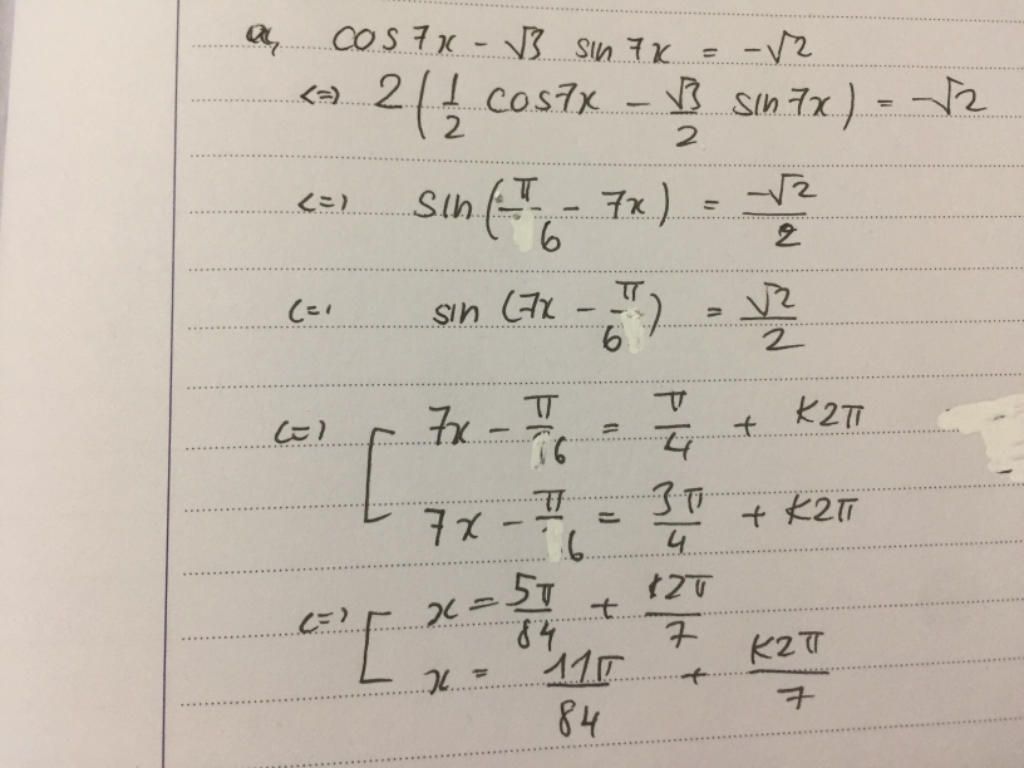 a, cos7x - √3 sin7x = -√2
<=> 2(1/2 cos7x - √3/2 sin7x) = -√2
<=> sin(π/6 - 7x) = -√2/2
<=> sin(7x - π/6) = √2/2
<=> [ 7x - π/6 = π/4 + k2π
7x - π/6 = 3π/4 + k2π
<=> [ x = 5π/84 + k2π/7
x = 11π/84 + k2π/7